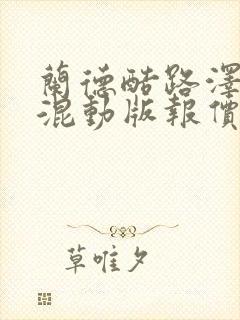 蘭德酷路澤
混動版報價
草唯夕